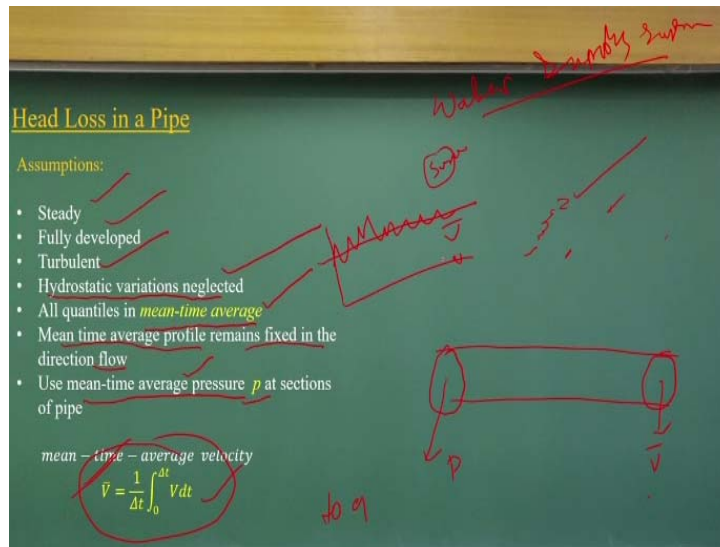 Water Supply System
Head Loss in a Pipe
Assumptions:
• Steady
• Fully developed
• Turbulent
• Hydrostatic variations neglected
• All quantiles in mean-time average
• Mean time average profile remains fixed in the
direction flow
• Use mean-time average pressure p at sections
of pipe
mean − time − average velocity
V̄ = 1/Δt ∫₀^Δt V dt
V̄
P
V̄
to a